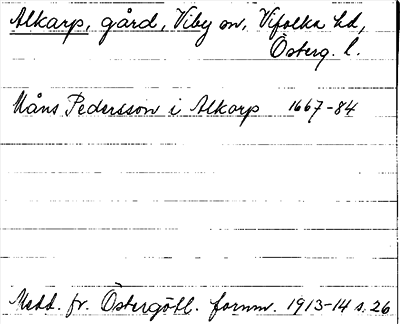 Alkarp, gård, Viby sn, Vifolka hd,
Österg. l.
Måns Pedersson i Alkarp 1667-84
Medd. fr. Östergötl. fornm. 1913-14 s. 26